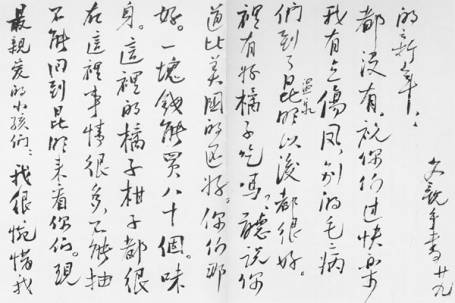 最親愛的小孩們：我很惋惜我
不能回到昆明来看你们。現
在這裡事情很多，不能抽
身。這裡的橘子柑子都很
好。一塊錢能買八十個。味
道比美國的还好。你们那
裡有好橘子吃嗎？聽說你
們到了昆明溫泉以後都很好。
我有点傷风，别的毛病
都没有。祝你们过快樂
的新年。
父親手書 廿九